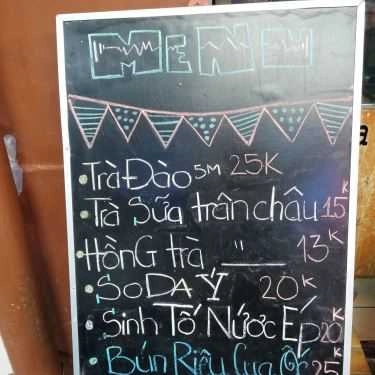 MENU
Trà Đào 5M 25K
Trà Sữa trân châu 15K
Hồng trà " 13K
SODA Ý 20K
Sinh Tố Nước Ép 20K
Bún Riêu Cua Ốc 25K